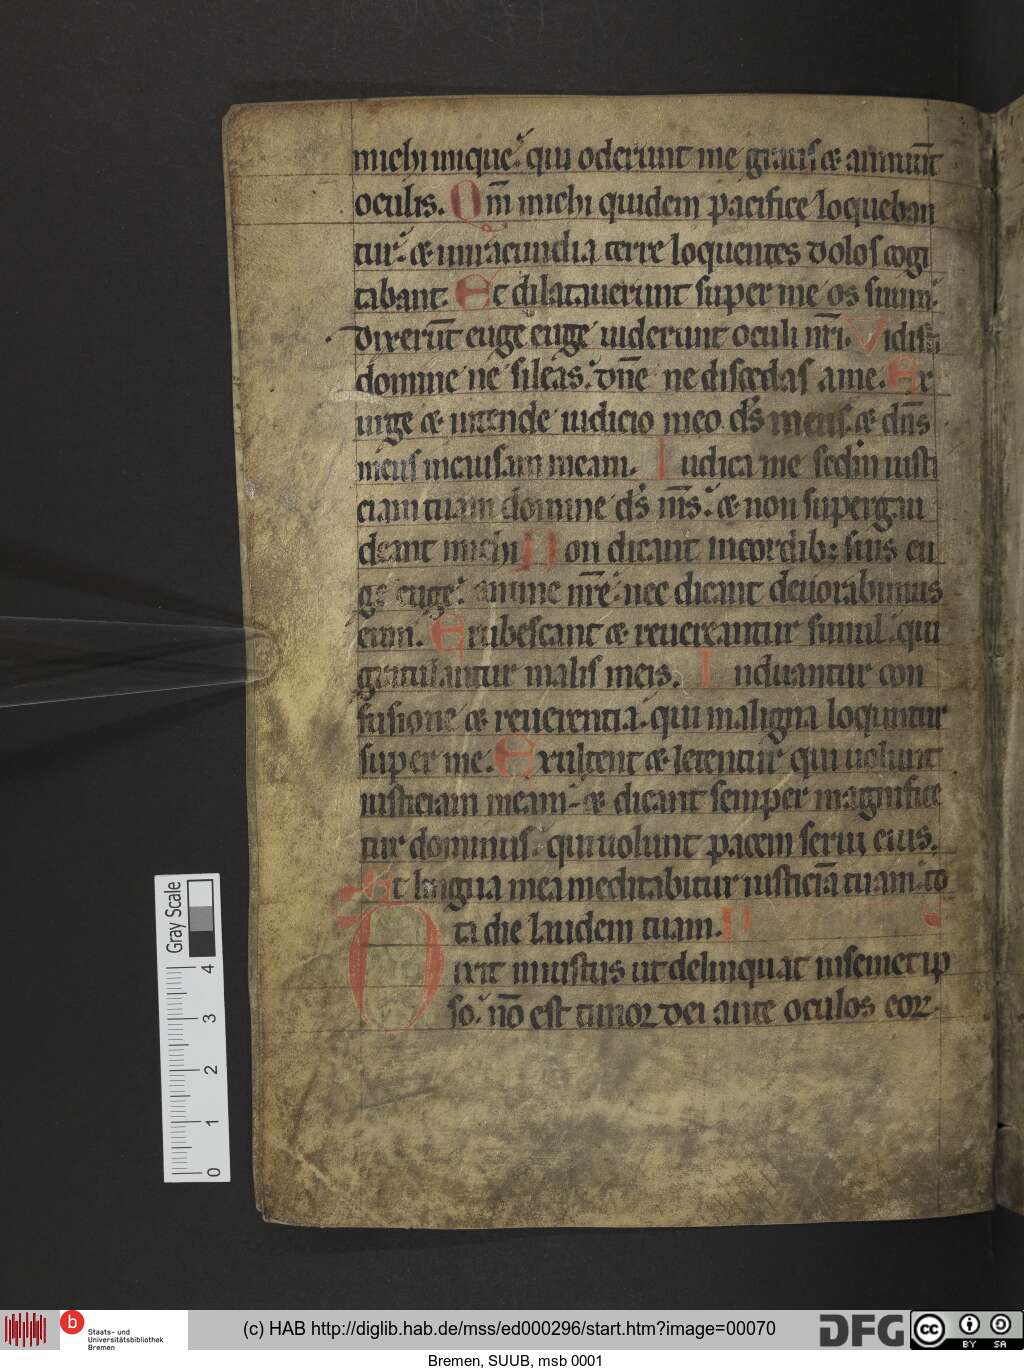 michi inique. qui oderunt me gratis & annuūt
oculis. Qm̄ michi quidem pacifice loqueban
tur. & in iracundia terre loquentes dolos cogi
tabant. Et dilatauerunt super me os suum.
dixerūt euge euge uiderunt oculi nr̄i. Vidisti
domine ne sileas. dn̄e ne discedas a me. Ex
urge & intende iudicio meo ds̄ meus. & dn̄s
meus in causam meam. Iudica me sedm̄ iusti
ciam tuam domine ds̄ ms̄. & non supergau
deant michi Non dicant in cordib; suis eu
ge euge. anime nr̄e. nec dicant deuorabimus
eum. Erubescant & reuereantur simul. qui
gratulantur malis meis. Induantur con
fusione & reuerentia. qui maligna loquntur
super me. Exultent & letentur qui uolunt
iusticiam meam. & dicant semper magnifice
tur dominus. qui uolunt pacem serui eius.
Et lingua mea meditabitur iusticiā tuam. to
ta die laudem tuam.
Dixit iniustus ut delinquat in semet ip
so. nō est timor dei ante oculos eor.
Gray Scale
4
3
2
1
0
b
Staats- und
Universitätsbibliothek
Bremen
(c) HAB http://diglib.hab.de/mss/ed000296/start.htm?image=00070
DFG
cc
BY SA
Bremen, SUUB, msb 0001